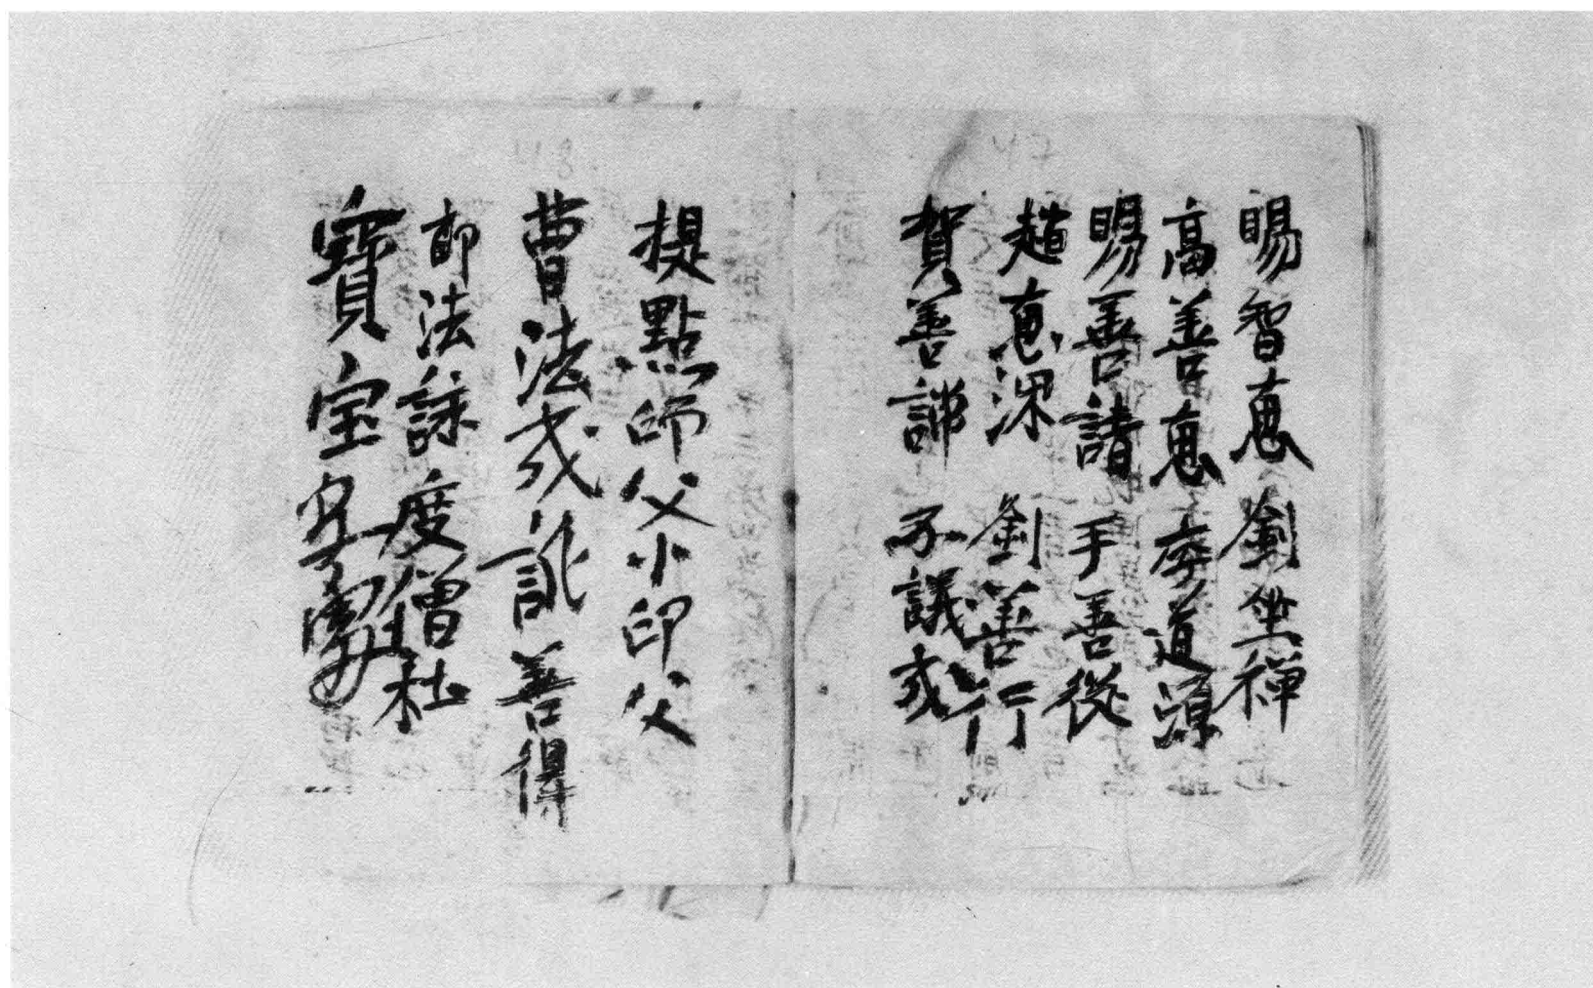 賜智惠 劉坐禪
高善惠 李道源
賜善請 手善從
趙惠深 劉善行
賀善 不議戎
提點師父小印父
曹法戎訛善得
都法詠度僧杜
寶宝